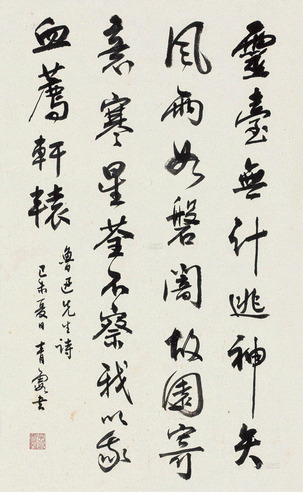 靈臺無計逃神矢
風雨如磐闇故園寄
意寒星荃不察我以我
血薦軒轅
魯迅先生詩
己未夏日青書